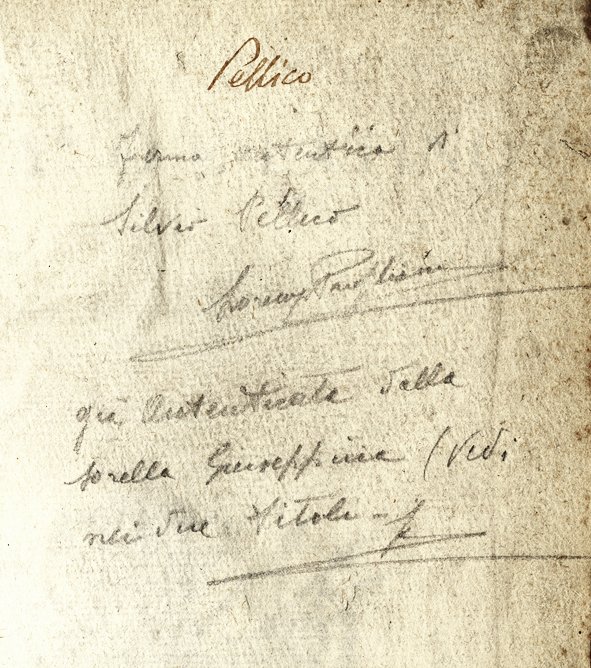 Pellico
Firma autentica di
Silvio Pellico
già autenticata dalla
sorella Giuseppina (Vedi
nei due titoli